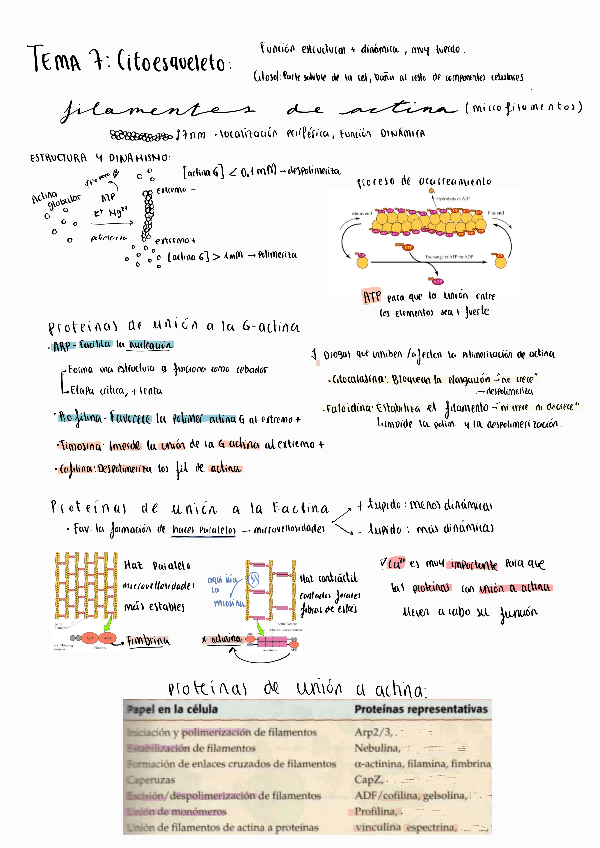 TEMA 7: Citoesqueleto:
Función estructural + dinámica, muy fuerte.
Citosol: Parte soluble de la cel, baña al resto de componentes celulares
filamentos de actina (microfilamentos)
7nm · localización periférica, Función DINÁMICA
ESTRUCTURA Y DINAMISMO:
[actina G] < 0.1 mM → despolimeriza
Proceso de
Actina globular
ATP
K+ Mg2+
polimeriza
extremo -
extremo +
[actina G] > 1mM → Polimeriza
Hydrolysis of ATP
Exchange of ATP for ADP
ATP para que la unión entre
los elementos sea + fuerte
Proteínas de unión a la G-actina
· ARP - Facilita la nucleación
Forma una estructura q funciona como cebador
Etapa crítica, + lenta
· Profilina - Favorece la polimer actina G al extremo +
· Timosina: Impide la unión de la G actina al extremo +
· Cofilina: Despolimeriza los fil de actina
Drogas que inhiben / afectan la Polimerización de actina
· Citocalasina: Bloquean la elongación - "no crece"
→ despolimeriza
· Faloidina: Estabiliza el filamento - "ni crece ni decrece"
Impide la polim. y la despolimerización.
Proteínas de unión a la F actina
+ tupido: menos dinámicas
· Fav. la formación de haces paralelos — microvellosidades
- tupido: más dinámicas
Haz Paralelo
microvellosidades
más estables
Fimbrina
aquí iría
la
miosina
Haz contráctil
fibras de estrés
α actinina
Ca2+ es muy importante para que
las proteínas con unión a actina
lleven a cabo su función
Proteínas de unión a actina:
Papel en la célula Proteínas representativas
Iniciación y polimerización de filamentos Arp2/3,
Estabilización de filamentos Nebulina,
Formación de enlaces cruzados de filamentos α-actinina, filamina, fimbrina
Caperuzas CapZ,
Escisión/despolimerización de filamentos ADF/cofilina, gelsolina,
Unión de monómeros Profilina,
Unión de filamentos de actina a proteínas vinculina espectrina,